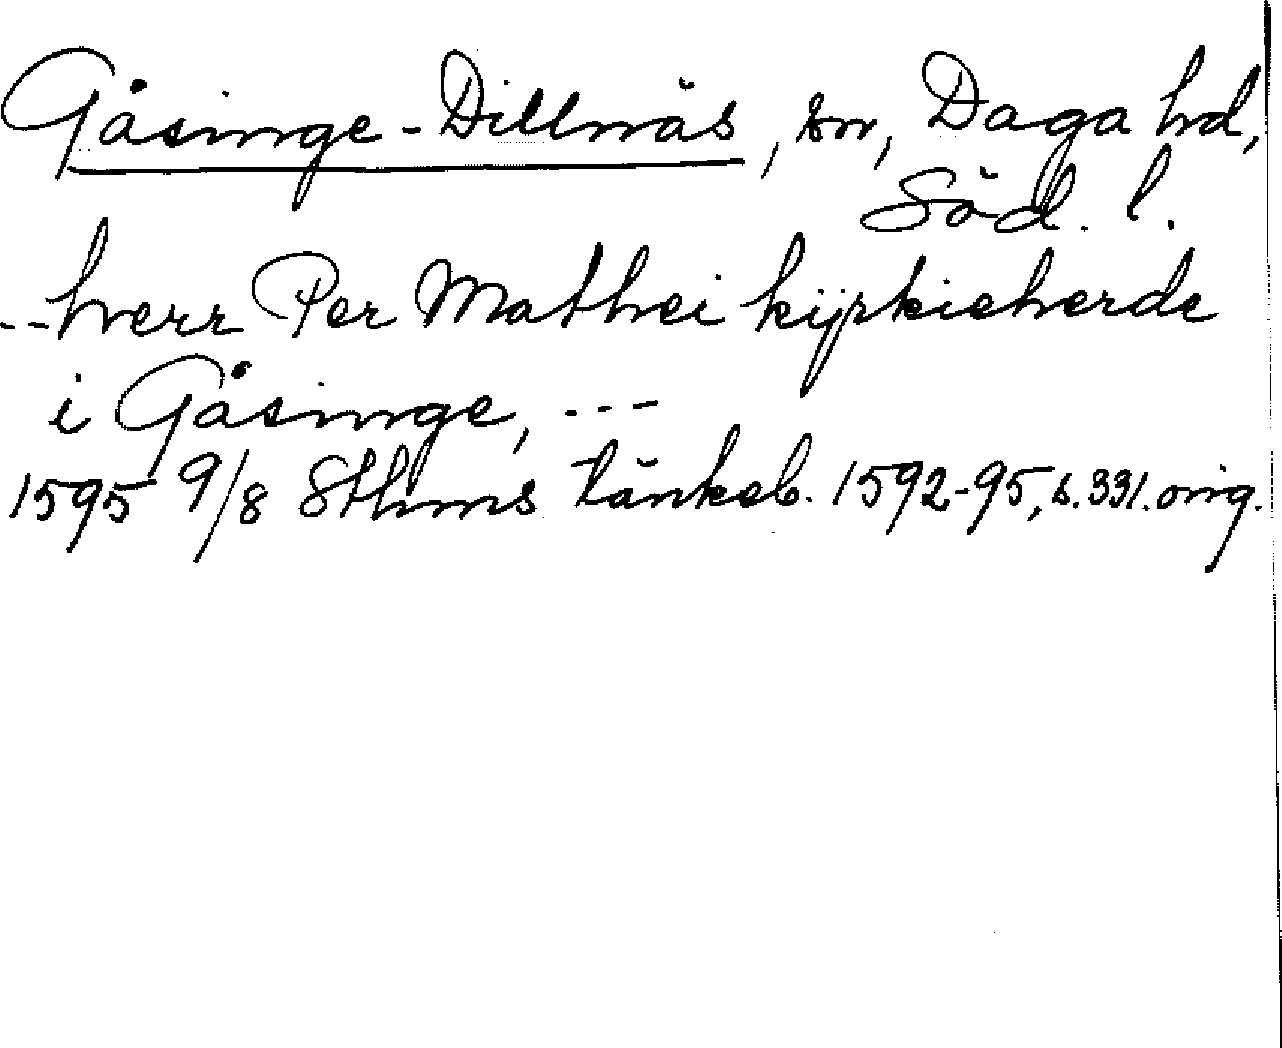 Gåsinge-Dillnäs, sn, Daga hd,
Söd. l.
--herr Per Mathei kijrkieherde
i Gåsinge, ---
1595 9/8 Sthms tänkeb. 1592-95, s. 331. orig.